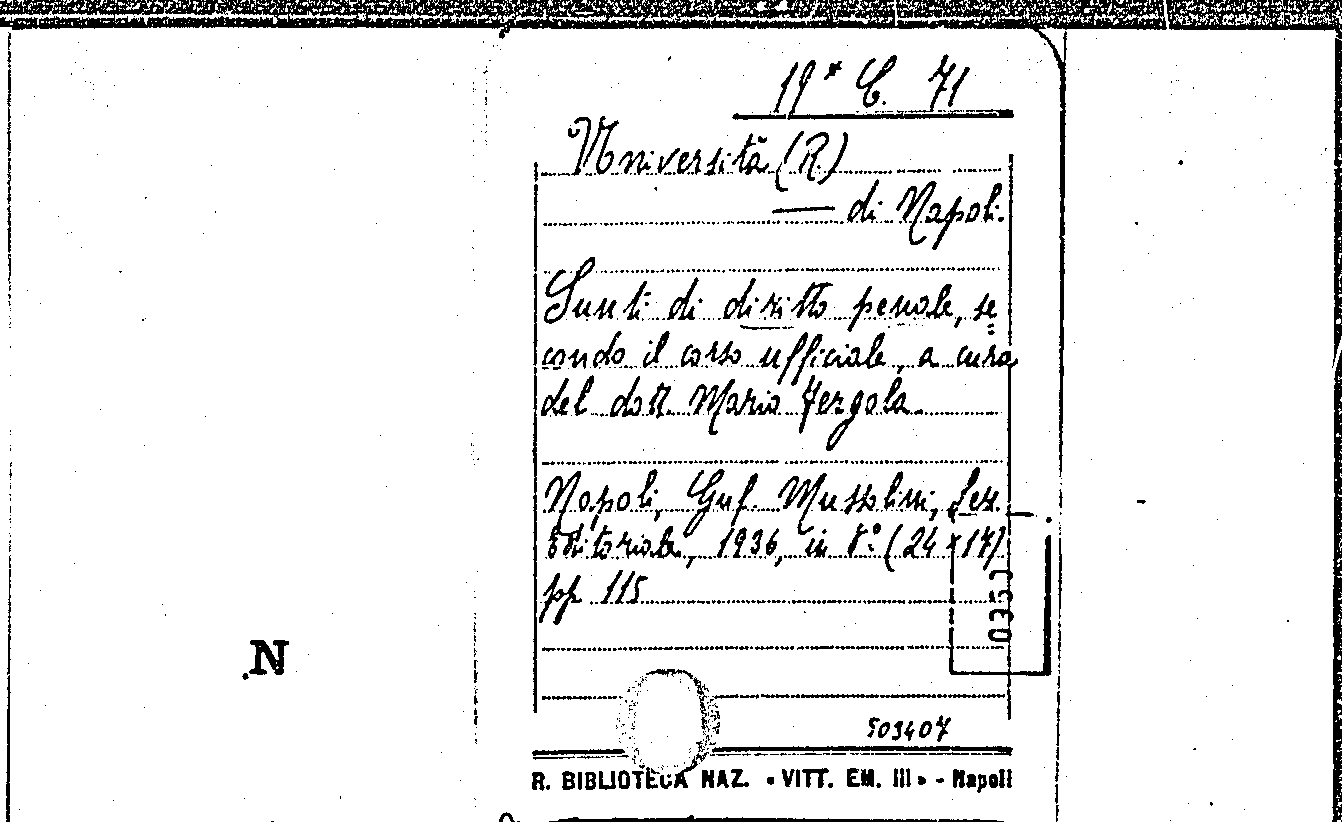 19* C. 71
Università (R.)
— di Napoli.
Sunti di diritto penale, se
condo il corso ufficiale, a cura
del dott. Mario Fergola.
Napoli, Guf. Mussolini, Sez.
Editoriale, 1936, in 8.° (24×17)
pp 115
N
503407
R. BIBLIOTECA NAZ. « VITT. EM. III » - Napoli